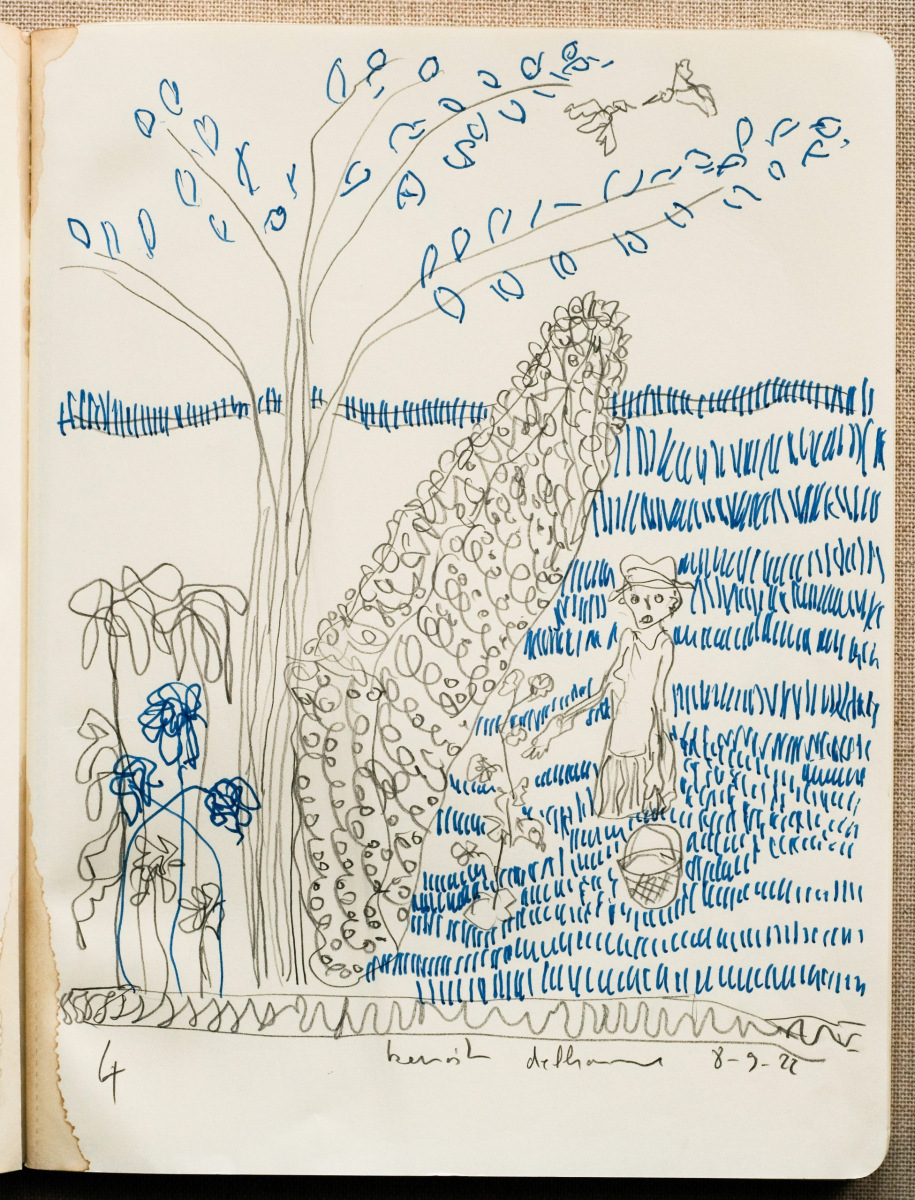 4
benoit delhomme 8-9-22